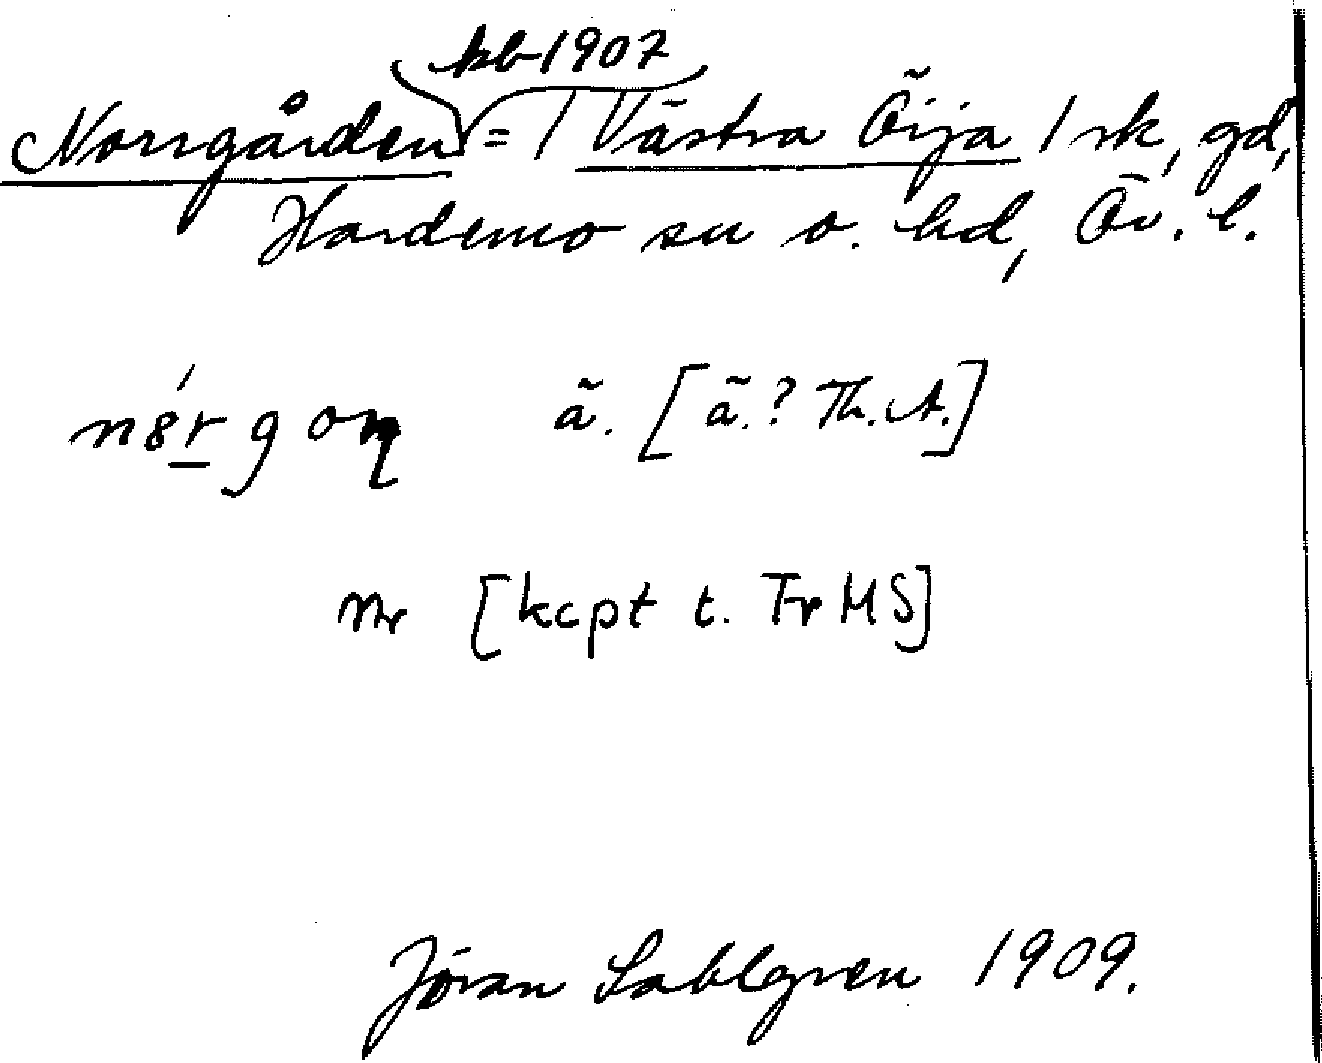 kb 1907
Norrgården = / Västra Öija / sk, gd,
Hardemo sn o. hd, Ör. l.
ã. [ã.? Th. A.]
nr [kcpt t. Fr MS]
Jöran Sahlgren 1909.